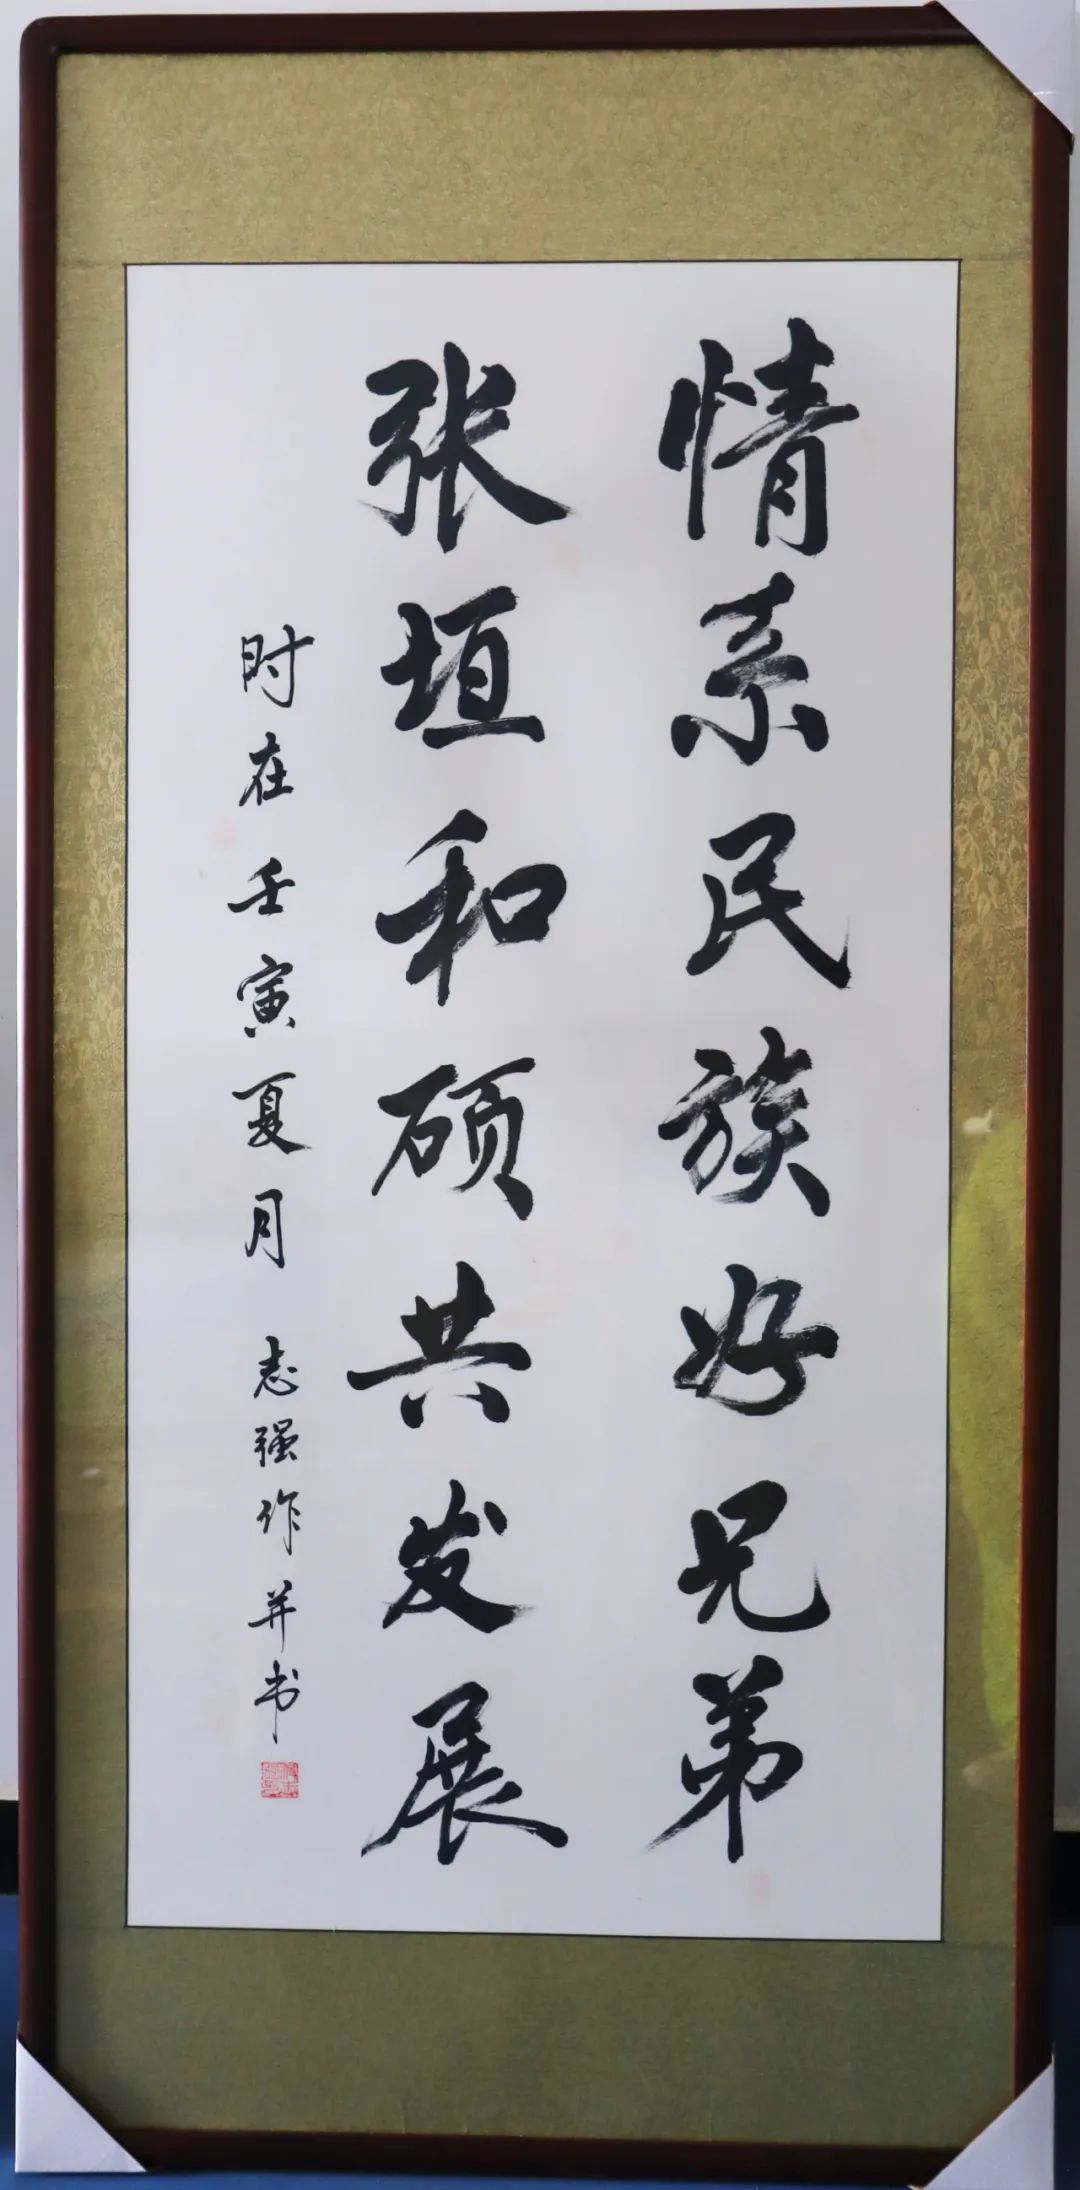 情系民族好兄弟
张垣和硕共发展
时在壬寅夏月 志强作并书